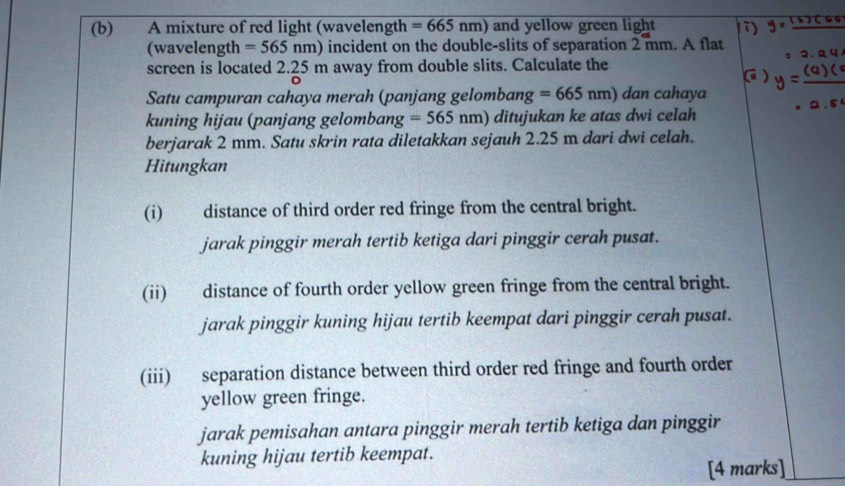 (b) A mixture of red light (wavelength = 665 nm) and yellow green light
(wavelength = 565 nm) incident on the double-slits of separation 2 mm. A flat
screen is located 2.25 m away from double slits. Calculate the
Satu campuran cahaya merah (panjang gelombang = 665 nm) dan cahaya
kuning hijau (panjang gelombang = 565 nm) ditujukan ke atas dwi celah
berjarak 2 mm. Satu skrin rata diletakkan sejauh 2.25 m dari dwi celah.
Hitungkan
(i) distance of third order red fringe from the central bright.
jarak pinggir merah tertib ketiga dari pinggir cerah pusat.
(ii) distance of fourth order yellow green fringe from the central bright.
jarak pinggir kuning hijau tertib keempat dari pinggir cerah pusat.
(iii) separation distance between third order red fringe and fourth order
yellow green fringe.
jarak pemisahan antara pinggir merah tertib ketiga dan pinggir
kuning hijau tertib keempat.
[4 marks]
i) y =
= 2.24
y = (4)(